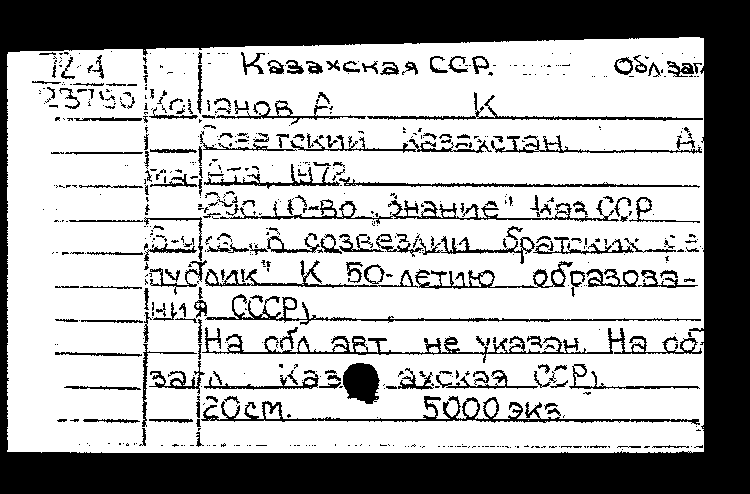 72-4 Казахская ССР. Обл. загл
23790 Кошанов, А К
Советский Казахстан. Ал
ма-Ата, 1972.
29с. (О-во „Знание" Каз ССР
Б-чка „В созвездии братских ре
публик" К 50-летию образова-
ния СССР).
На обл. авт. не указан. На об
загл. Казахская ССР).
20см. 5000 экз